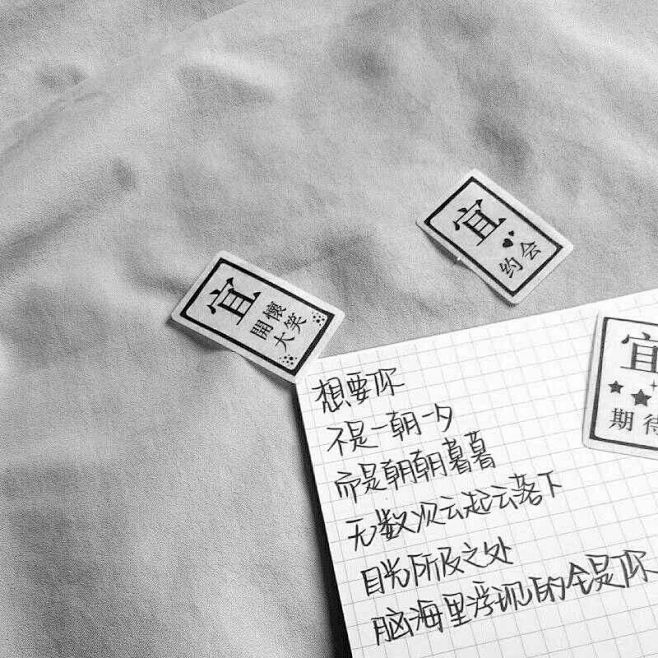 宜
约会
宜
開懷
大笑
宜
期待
想要你
不是一朝一夕
而是朝朝暮暮
无数次云起云落下
目光所及之处
脑海里浮现的全是你